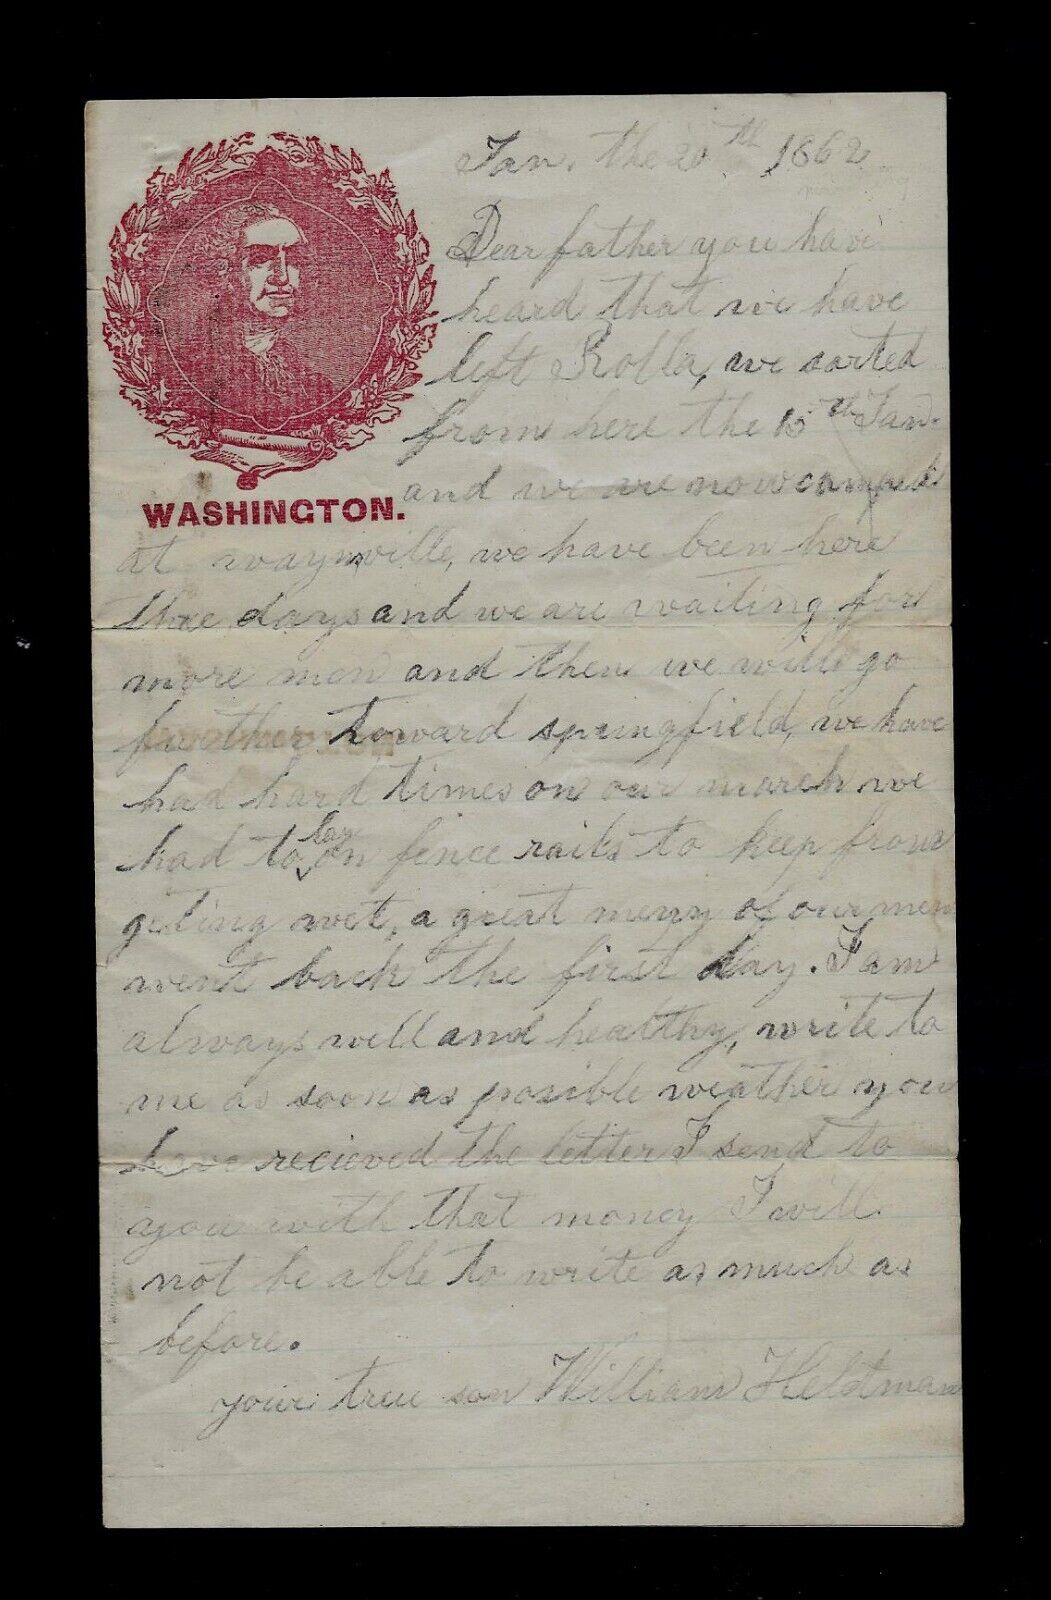 Jan. the 20th 1862
Dear father you have
heard that we have
left Rolla, we sarted
from here the 15th Jan.
and we are now
WASHINGTON.
at waynville, we have been here
thre days and we are waiting for
more men and then we will go
further toward springfield, we have
had hard times on our march we
had to lay on fence rails to keep from
geting wet, a great meny of our men
went back the first day. I am
always well and healthy, write to
me as soon as posible weather you
have recieved the letter I send to
you with that money I will
not be able to write as much as
before.
your treu son William Heldman